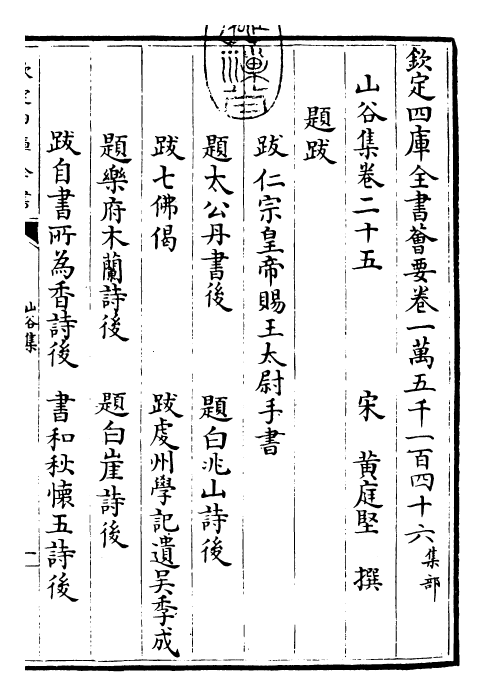 欽定四庫全書薈要卷一萬五千一百四十六集部
山谷集卷二十五 宋 黃庭堅 撰
題跋
跋仁宗皇帝賜王太尉手書
題太公丹書後 題白兆山詩後
跋七佛偈 跋處州學記遺吳季成
題樂府木蘭詩後 題白崖詩後
跋自書所為香詩後 書和秋懷五詩後
山谷集
一